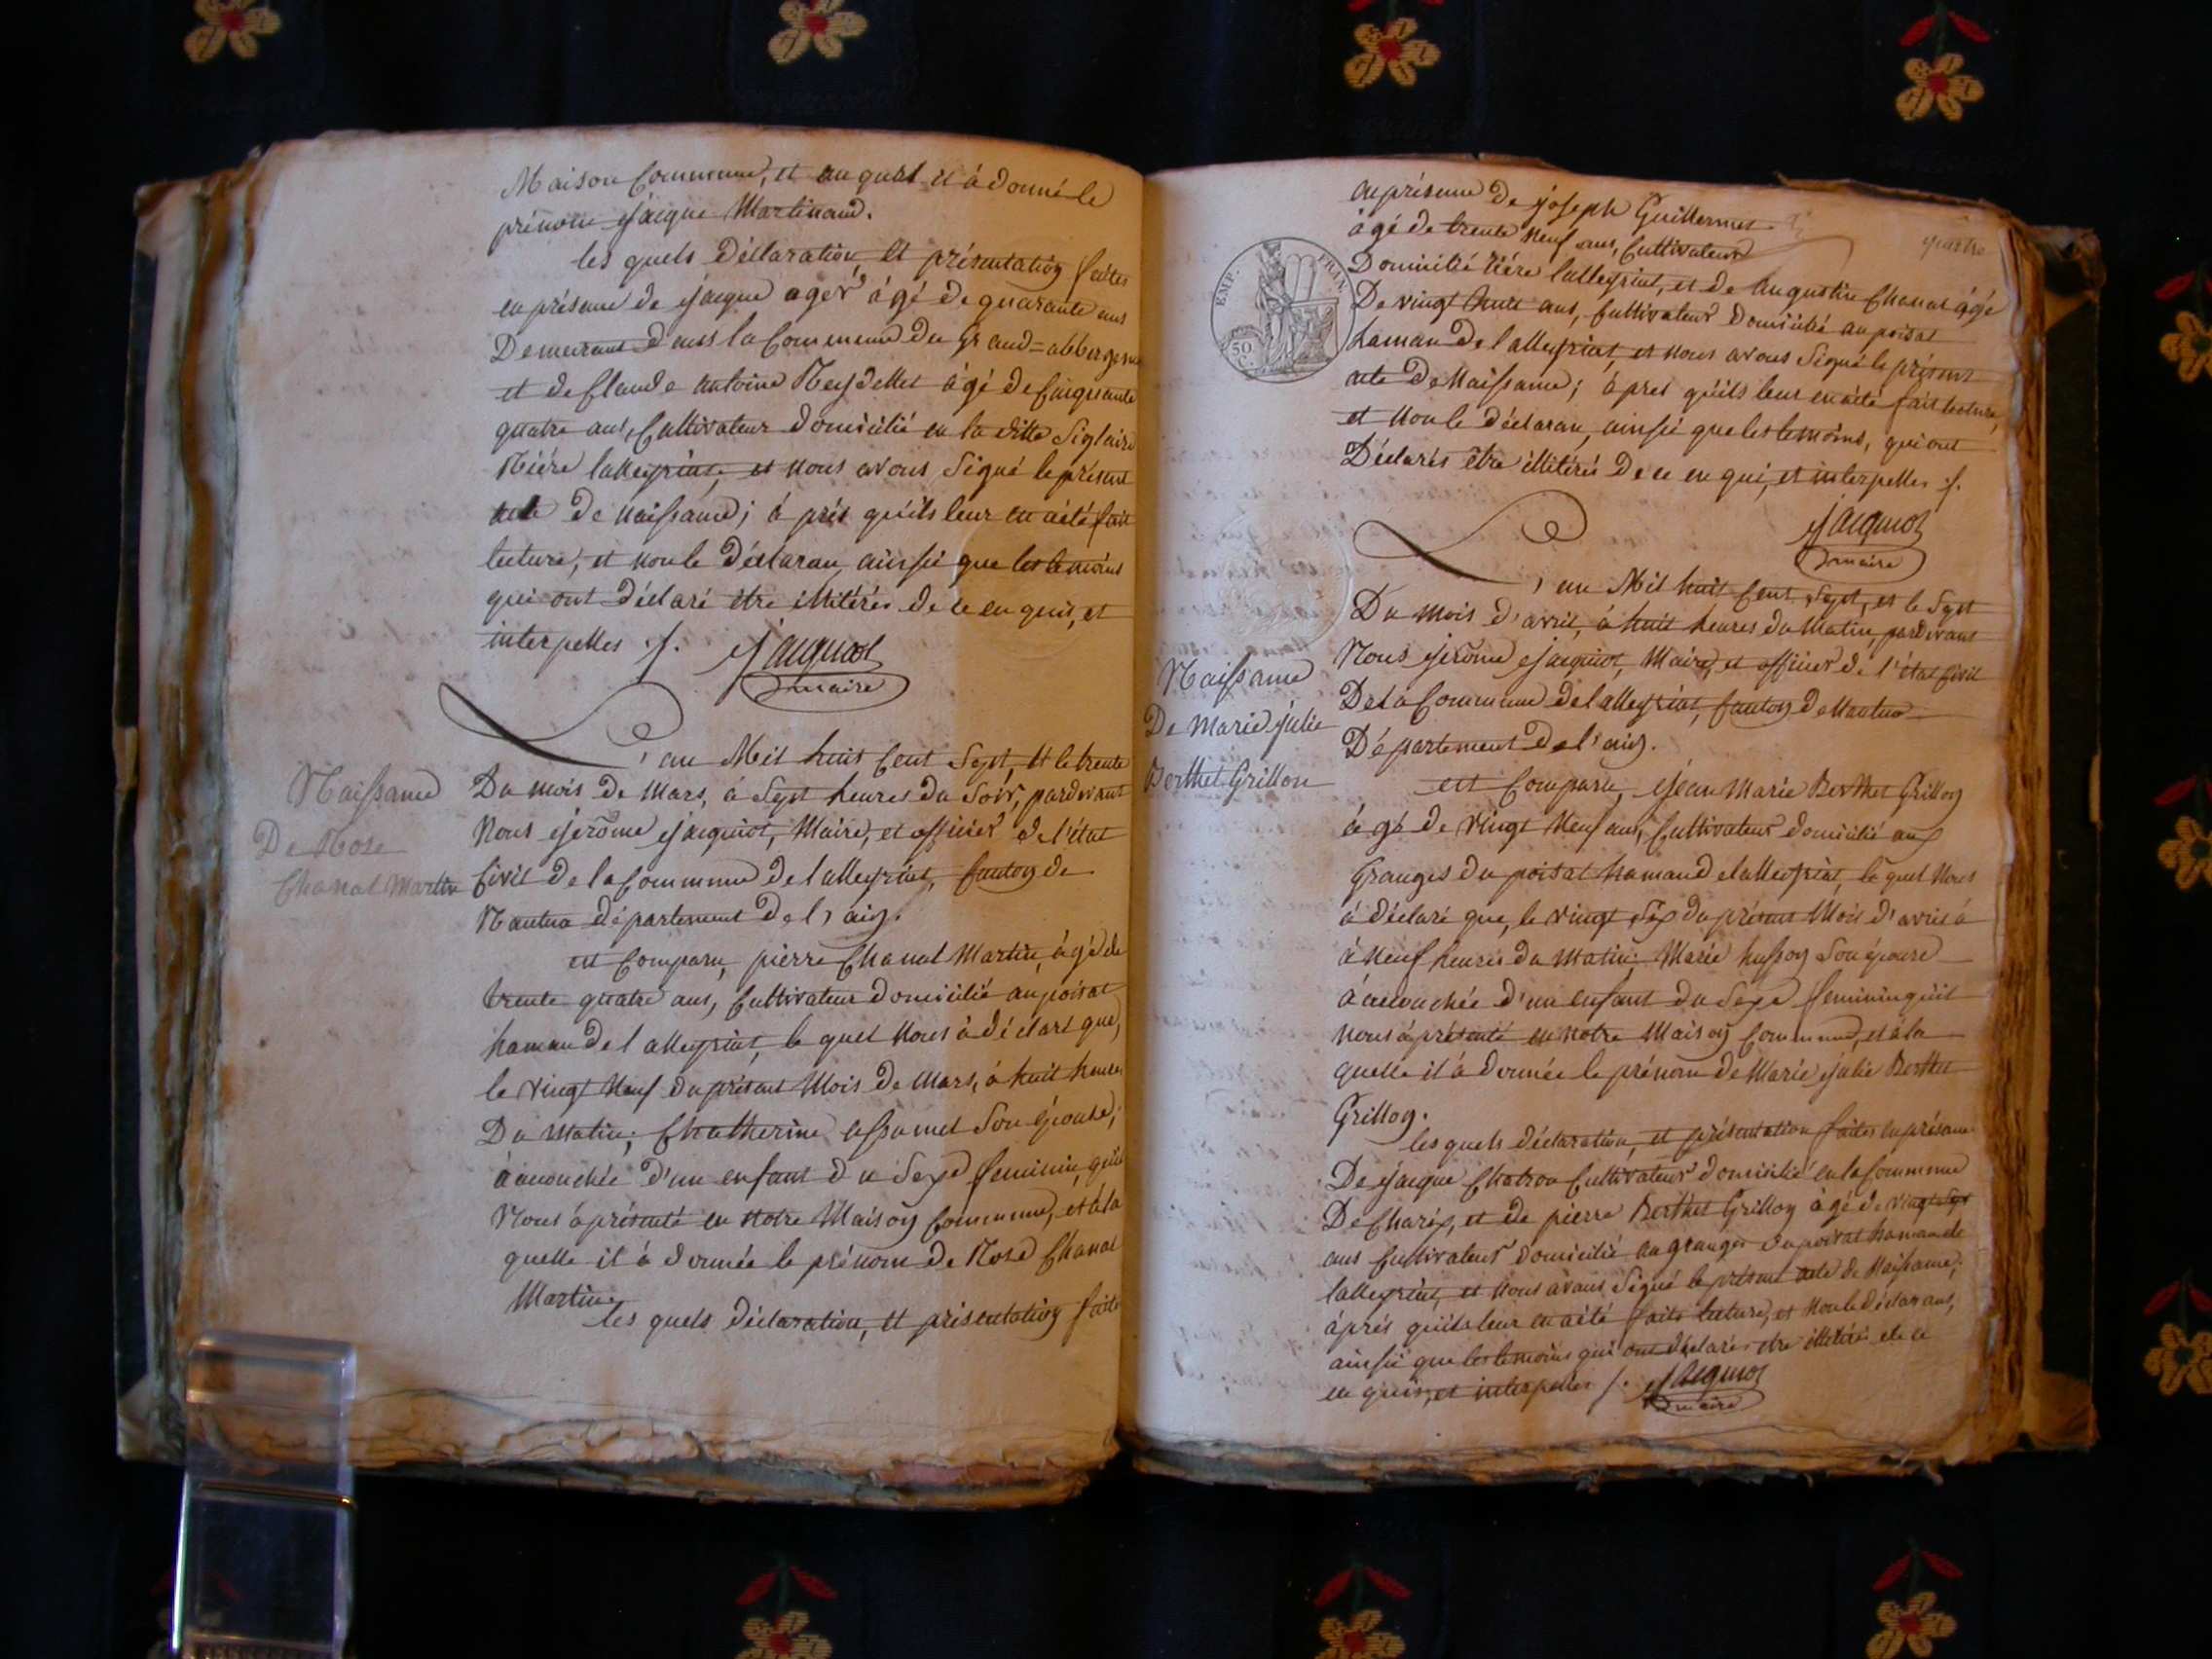 Maison Commune, et au quel il à donné le
prénom Jacque Martinand.
les quels Déclaration, et présentation faites
en présence de Jacque ager âgé de quarante ans
Demeurant dans la Commune du Grand=abbergement
et de Claude antoine Neydellet âgé de Cinquante
quatre ans, Cultivateur domicilié en la ditte
Rière lalleyriat, et nous avons Signé le présent
acte de naissance; à près qu'ils leur en a été fait
lecture, et non le Déclaran, ainsii que les temoins
qui ont Déclaré être illitérés de ce en quis, et
interpelles ./. Jacquiot
maire
Naissance
De Rose
Chanal Martin
L'an Mil huit Cent Sept, et le trente
Du mois de Mars, à Sept heures du Soir, pardevant
Nous Jerôme Jacquiot, Maire, et officier de l'état
Civil de la Commune de lalleyriat, Canton de
Nantua département de l'ain.
est Comparu, pierre Chanal Martin, âgé de
trente quatre ans, Cultivateur domicilié au poisat
hamau de lalleyriat, le quel Nous à déclaré que,
le vingt Neuf du présent Mois de Mars, à huit heures
Du Matin; Chatherine assumel Son épouse;
à accouchée d'un enfant du Sexe feminin, qu'il
Nous à présenté en notre Maison Commune, et à la
quelle il à donnée le prénom de Rose Chanal
Martin.
les quels déclaration, et présentation faite
quatre
en présence de Joseph Guillermet
âgé de trente Neuf ans, Cultivateur
Domicilié rière lalleyriat, et de augustin Chanal âgé
De vingt huit ans, Cultivateur domicilié au poisat
hamau de lalleyriat, et nous avons Signé le présent
acte de Naissance; à pres qu'ils leur en a été fait lecture,
et non le Déclaran, ainsii que les temoins, qui ont
Déclarés être illitérés de ce en qui, et interpelles ./.
Jacquiot
maire
EMP. FRAN.
50 C.
Naissance
De Marie Julie
Berthet Grillon
L'an Mil huit Cent Sept, et le Sept
Du mois d'avril, à huit heures du Matin, pardevant
Nous Jerôme Jacquiot, Maire, et officier de l'état Civil
De la Commune de lalleyriat, Canton de Nantua
Département de l'ain.
est Comparu, Jean Marie Berthet Grillon
âgé de vingt Neuf ans, Cultivateur domicilié aux
Granges du poisat hamau de lalleyriat, le quel Nous
à déclaré que, le vingt Six du présent Mois d'avril à
à Neuf heures du Matin; Marie husson Son épouse
à accouchée d'un enfant du Sexe feminin qu'il
nous à présenté en notre Maison Commune, et à la
quelle il à donnée le prénom de Marie Julie Berthet
Grillon.
les quels déclaration, et présentation faites en présence
De Jacque Chatron Cultivateur domicilié en la Commune
De Charix, et de pierre Berthet Grillon âgé de vingt Sept
ans Cultivateur domicilié au granges du poisat hamau de
lalleyriat, et nous avons Signé le présent acte de Naissance;
à près qu'ils leur en a été faite lecture, et non le déclarant,
ainsii que les temoins qui ont déclarés être illitérés de ce
en quis, et interpelles ./. Jacquiot
maire